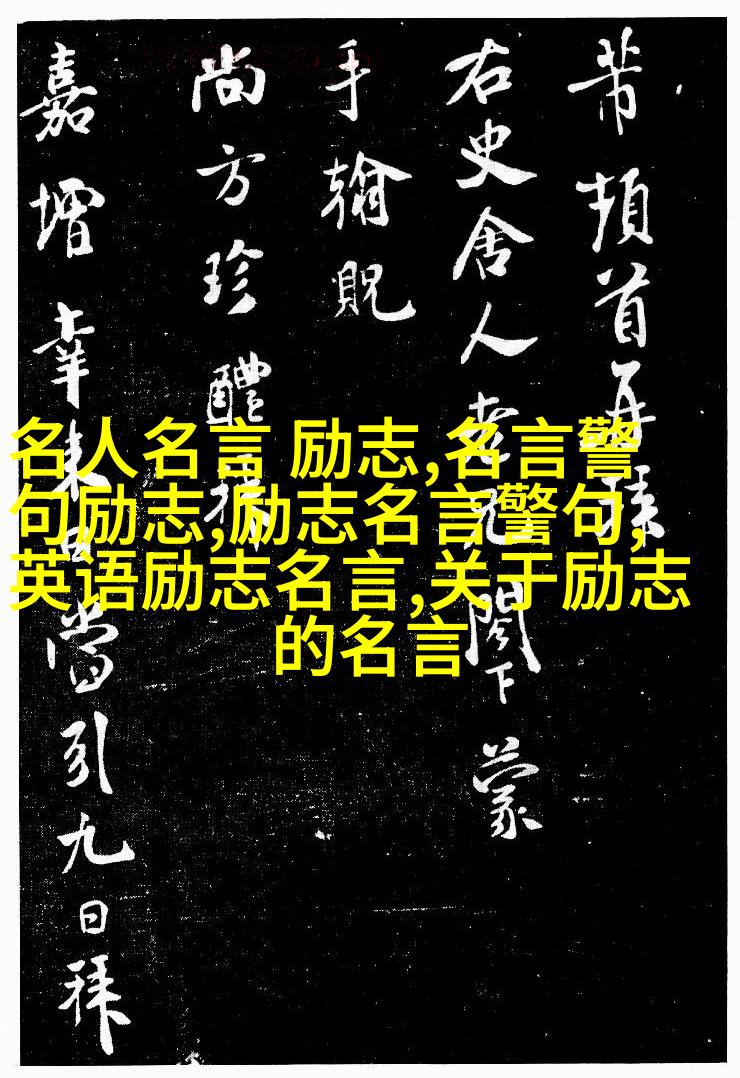 芾頓首再拜
右史舍人老兄閤下蒙
手翰貺
尚方珍醴
嘉增幸来日當引九日拜
名人名言 励志,名言警
句励志,励志名言警句,
英语励志名言,关于励志
的名言